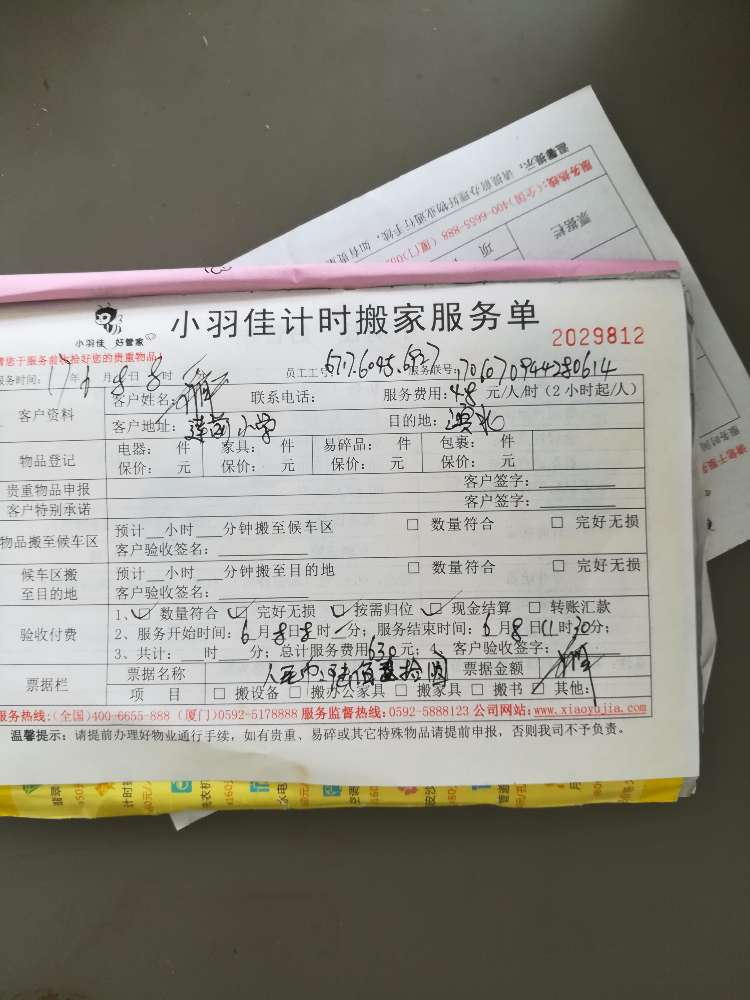 小羽佳 好管家
小羽佳计时搬家服务单
2029812
请您于服务前收捡好您的贵重物品
服务时间：17年6月8日8时 员工工号：6717.6095.6927 服务联号：1706070944280614
客户资料
客户姓名： 联系电话： 服务费用：48元/人/时（2小时起/人）
客户地址：莲前小学 目的地：
物品登记
电器： 件 家具： 件 易碎品： 件 包裹： 件
保价： 元 保价： 元 保价： 元 保价： 元
贵重物品申报 客户签字：
客户特别承诺 客户签字：
物品搬至候车区
预计__小时___分钟搬至候车区 □ 数量符合 □ 完好无损
客户验收签名：
候车区搬至目的地
预计__小时___分钟搬至目的地 □ 数量符合 □ 完好无损
客户验收签名：
验收付费
1、☑ 数量符合 ☑ 完好无损 ☑ 按需归位 ☑ 现金结算 □ 转账汇款
2、服务开始时间：6月8日8时 分；服务结束时间：6月8日11时30分；
3、共计：___时___分；总计服务费用630元；4、客户验收签字：
票据栏
票据名称 人民币：陆佰叁拾圆 票据金额
项 目 □ 搬设备 □ 搬办公家具 □ 搬家具 □ 搬书 ☑ 其他：
服务热线：（全国）400-6655-888（厦门）0592-5178888 服务监督热线：0592-5888123 公司网站：www.xiaoyujia.com
温馨提示：请提前办理好物业通行手续，如有贵重、易碎或其它特殊物品请提前申报，否则我司不予负责。
温馨提示：请提前办理好物业通行手续，如有贵重
服务热线：（全国）400-6655-888（厦门）05
票据栏
项